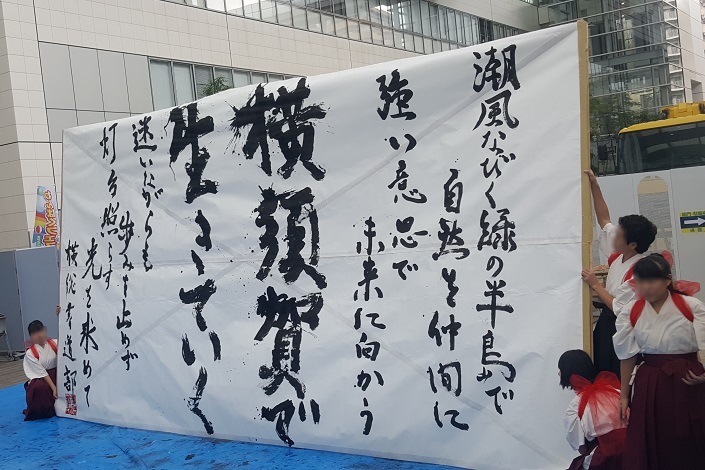 潮風なびく緑の半島で
自然を仲間に
強い意思で
未来に向かう
横須賀で
生きていく
迷いながらも
歩みを止めず
光を求めて
灯台照らす
横総書道部